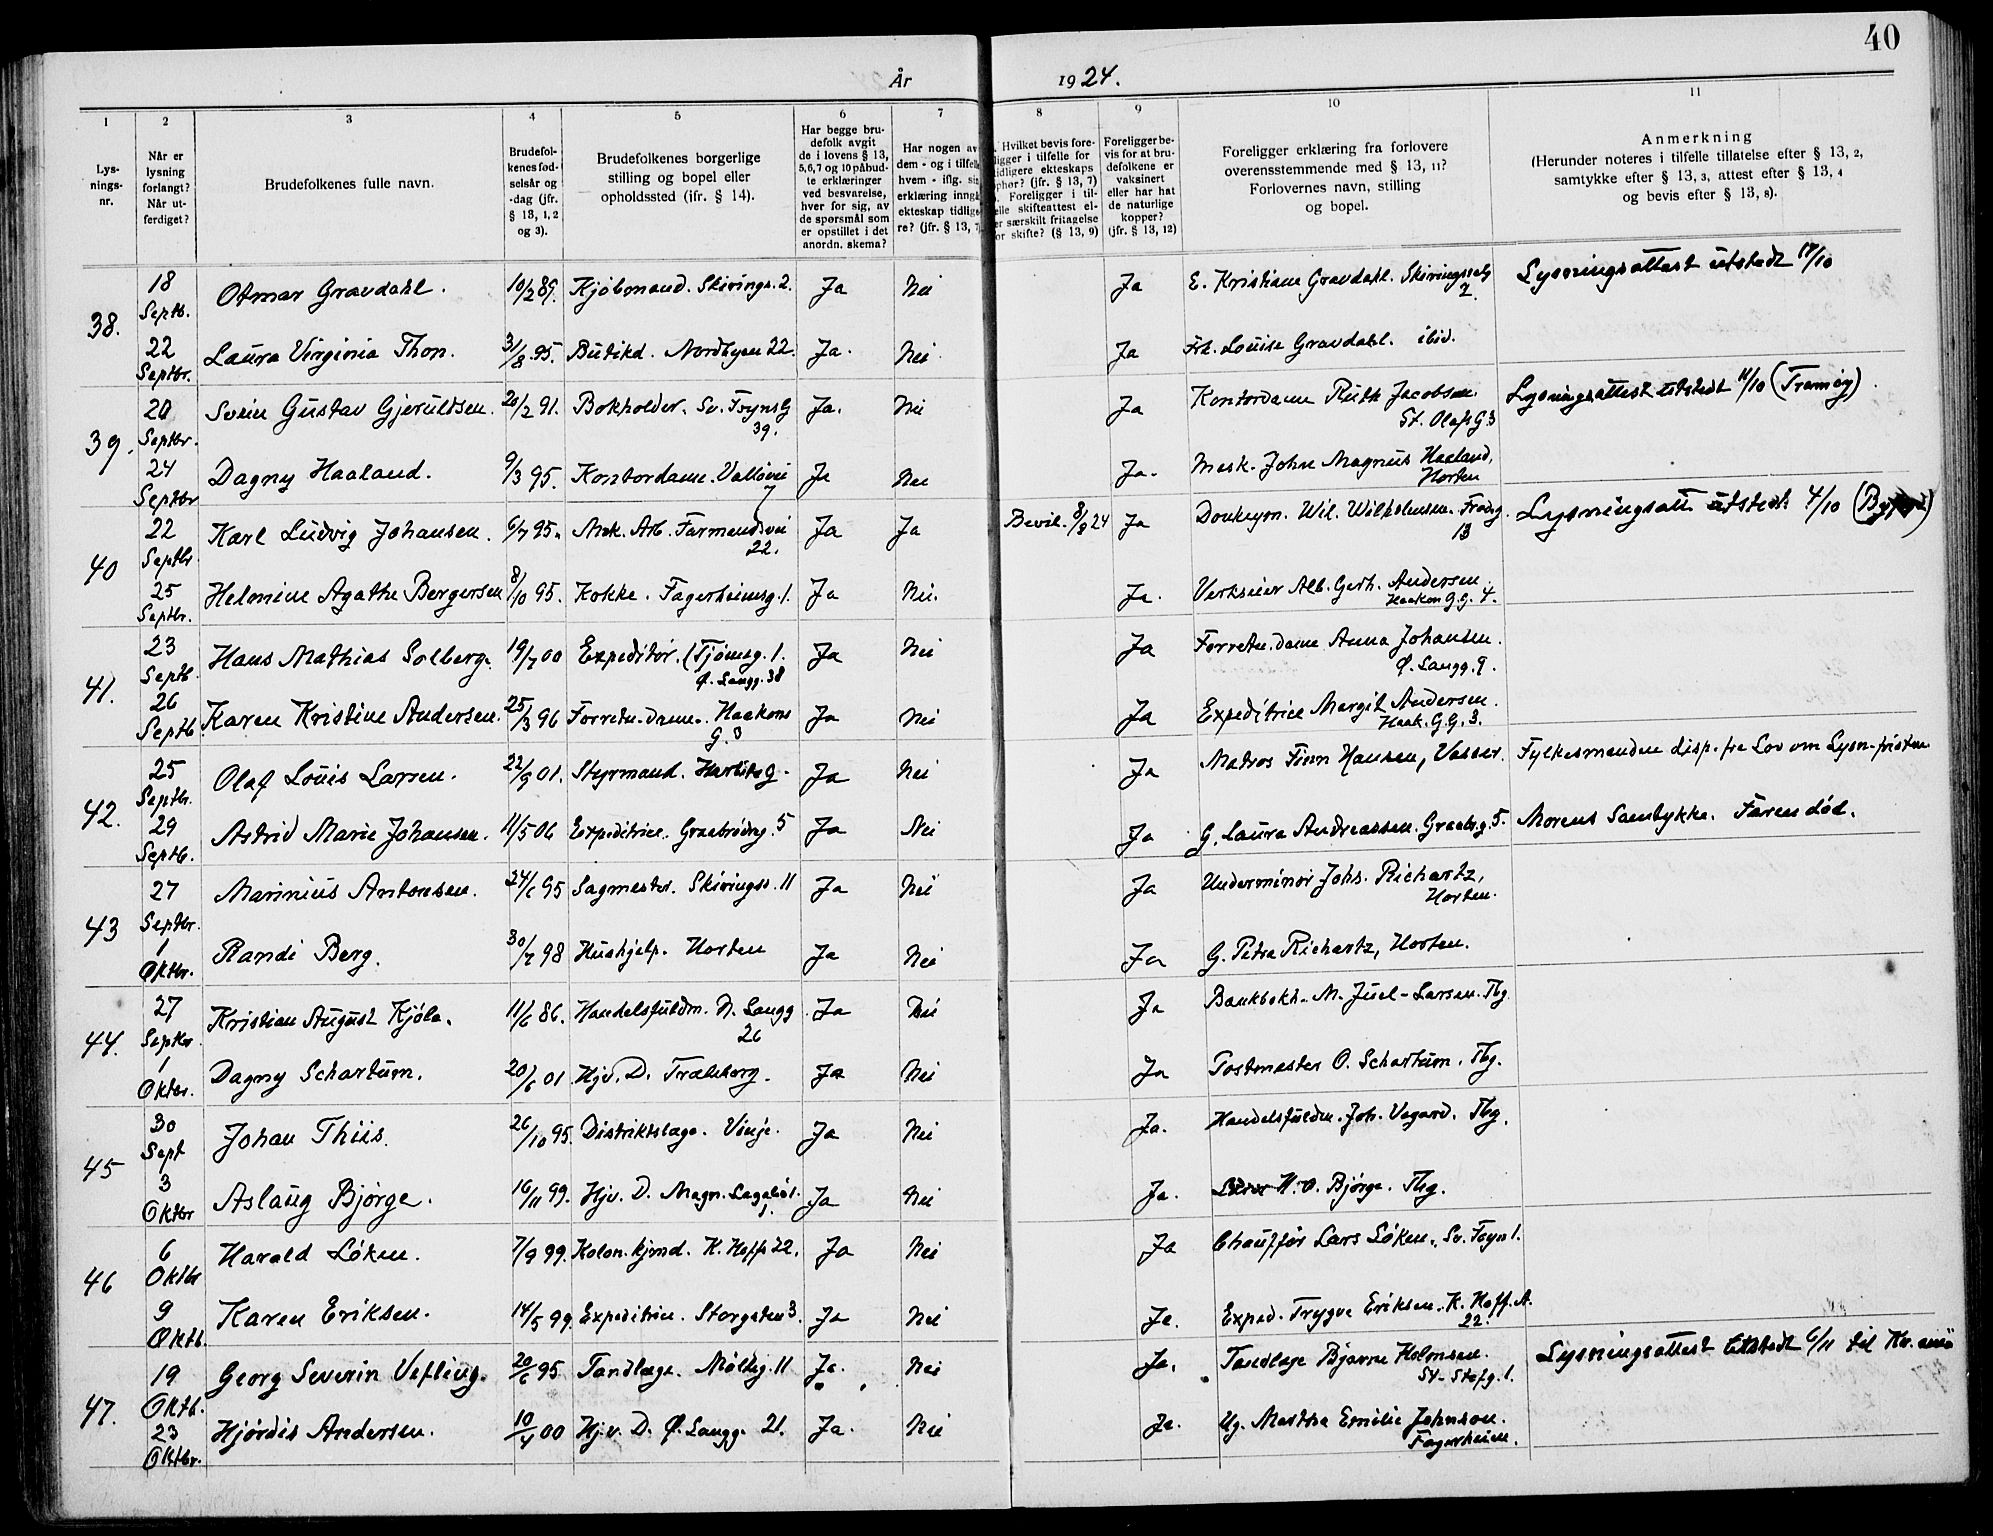 40
År 1924.
1 2 3 4 5 6 7 8 9 10 11
Lysnings-nr.
Når er lysning forlangt? Når utferdiget?
Brudefolkenes fulle navn.
Brudefolkenes fødselsår og -dag (jfr. § 13, 1, 2 og 3).
Brudefolkenes borgerlige stilling og bopel eller opholdssted (ifr. § 14).
Har begge brudefolk avgit de i lovens § 13, 5,6,7 og 10 påbudte erklæringer ved besvarelse, hver for sig, av de spørsmål som er opstillet i det anordn. skema?
Har nogen av dem - og i tilfelle hvem - iflg. sin erklæring inngå ekteskap tidligere? (jfr. § 13, 7
Hvilket bevis foreligger i tilfelle for tidligere ekteskaps ophør? (jfr. § 13, 7) Foreligger i tilfelle skifteattest eller særskilt fritagelse for skifte? (§ 13, 9)
Foreligger bevis for at brudefolkene er vaksinert eller har hat de naturlige kopper? (jfr. § 13, 12)
Foreligger erklæring fra forlovere overensstemmende med § 13, 11? Forlovernes navn, stilling og bopel.
Anmerkning (Herunder noteres i tilfelle tillatelse efter § 13, 2, samtykke efter § 13, 3, attest efter § 13, 4 og bevis efter § 13, 8).
38. 18 Septb. Otmar Gravdahl. 10/2 89. Kjøbmand. Skirings. 2. Ja Nei Ja E. Kristiane Gravdahl. Skiringssalg 2. Lysningsattest utstedt 17/10
22 Septbr. Laura Virginia Thon. 31/8 95. Butikd. Nordbyen 22. Ja. Nei Ja Frk. Louise Gravdahl. ibid.
39. 20 Septbr. Svein Gustav Gjerüldsen. 20/2 91. Bokholder. Sv. FoynsG 39. Ja. Nei Ja Kontordame Ruth Jacobsen. St. OlafsG 3 Lysningsattest utstedt 11/10 (Tromøy)
24 Septbr Dagny Haaland. 9/3 95. Kontordame. Valløvei 7 Ja Nei Ja. Mask. John Magnus Haaland, Horten
40 22 Septbr Karl Ludvig Johansen. 6/7 95. Mek. Arb. Farmandsvei 22. Ja Ja Bevil. 8/8 24 Ja Donkeym. Wil. Wilhelmsen. Frodeg. 13 Lysningsatt. utstedt 4/10
25 Septbr. Helmine Agathe Bergersen 8/10 95. Kokke. Fagerheimsg. 1. Ja Nei. Ja. Verkseier Alb. Gerh. Andersen. Haakon G.G. 4.
41. 23 Septb. Hans Mathias Solberg. 19/7 00 Expeditør. (Tjømeg. 1. Ø. Langg. 38 Ja Nei Ja Forretn. dame Anna Johansen. Ø. Langg. 9.
26 Septb. Karen Kristine Andersen. 25/3 96 Forretn. dame. Haakons G. 3 Ja Nei Ja Expeditrice Margit Andersen. Haak. G.G. 3.
42. 25 Septbr. Olaf Louis Larsen. 22/9 01. Styrmand. Ja Nei Ja Matros Finn Hansen, Vasser. Fylkesmanden disp. fra Lov om Lysn-fristen
29 Septb. Astrid Marie Johansen. 11/5 06 Expeditrice. Graabrødreg. 5 Ja Nei Ja G. Laura Andreassen. Graabr.g. 5. Morens Samtykke. Faren død.
43 27 Septbr. Marinius Antonsen. 24/6 95 Sagmester. Skiringss. 11 Ja Nei Ja Underminør Johs. Richartz, Horten.
1 Oktbr. Randi Berg. 30/7 98 Hushjelp. Horten Ja Nei Ja G. Petra Richartz, Horten.
44. 27 Septbr Kristian August Kjøle. 11/6 86. Handelsfuldm. N. Langg. 26 Ja Nei Ja Bankbokh. M. Juel-Larsen. Tbg
1 Oktbr. Dagny Schartum. 20/6 01 Hjv. D. Træleborg. Ja Nei Ja Postmester O. Schartum. Tbg.
45 30 Sept Johan Thiis. 26/10 95. Distriktslæge. Vinje. Ja Nei Ja. Handelsfuldm. Joh. Vegard. Tbg.
3 Oktbr Aslaug Bjørge. 16/11 99. Hjv. D. Magn. Lagabøt. 1. Ja Nei Ja. H. O. Bjørge. Tbg.
46 6 Oktbr Harald Løken. 7/9 99. Kolon. kjmd. K. Hoffs 22. Ja Nei Ja Chauffør Lars Løken. Sv. Foyn 1.
9 Oktb. Karen Eriksen. 14/5 99. Expeditrice. Storgaten 3. Ja Nei Ja. Exped. Trygve Eriksen. K. Hoff. A. 22.
47. 19 Oktb. Georg Severin Vefling. 20/6 95 Tandlæge. Mølleg. 11 Ja. Nei Ja. Tandlæge Bjarne Holmsen. St. Stefg. 1. Lysningsattest utstedt 6/11 til Kr.ania
23 Oktbr. Hjørdis Andersen. 10/4 00 Hjv. D. Ø. Langg. 21. Ja. Nei Ja. Ug. Martha Emilie Johnson. Fagerheim.